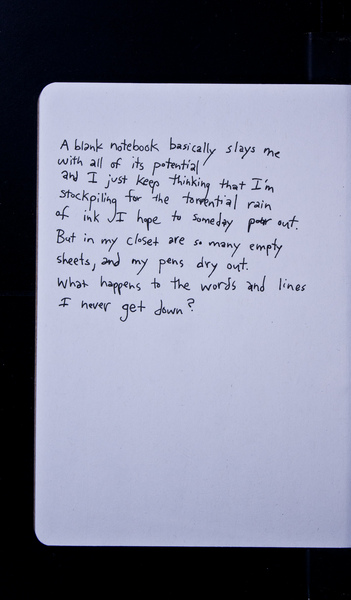 A blank notebook basically slays me
with all of its potential
and I just keep thinking that I'm
stockpiling for the torrential rain
of ink I hope to someday pour out.
But in my closet are so many empty
sheets, and my pens dry out.
What happens to the words and lines
I never get down?